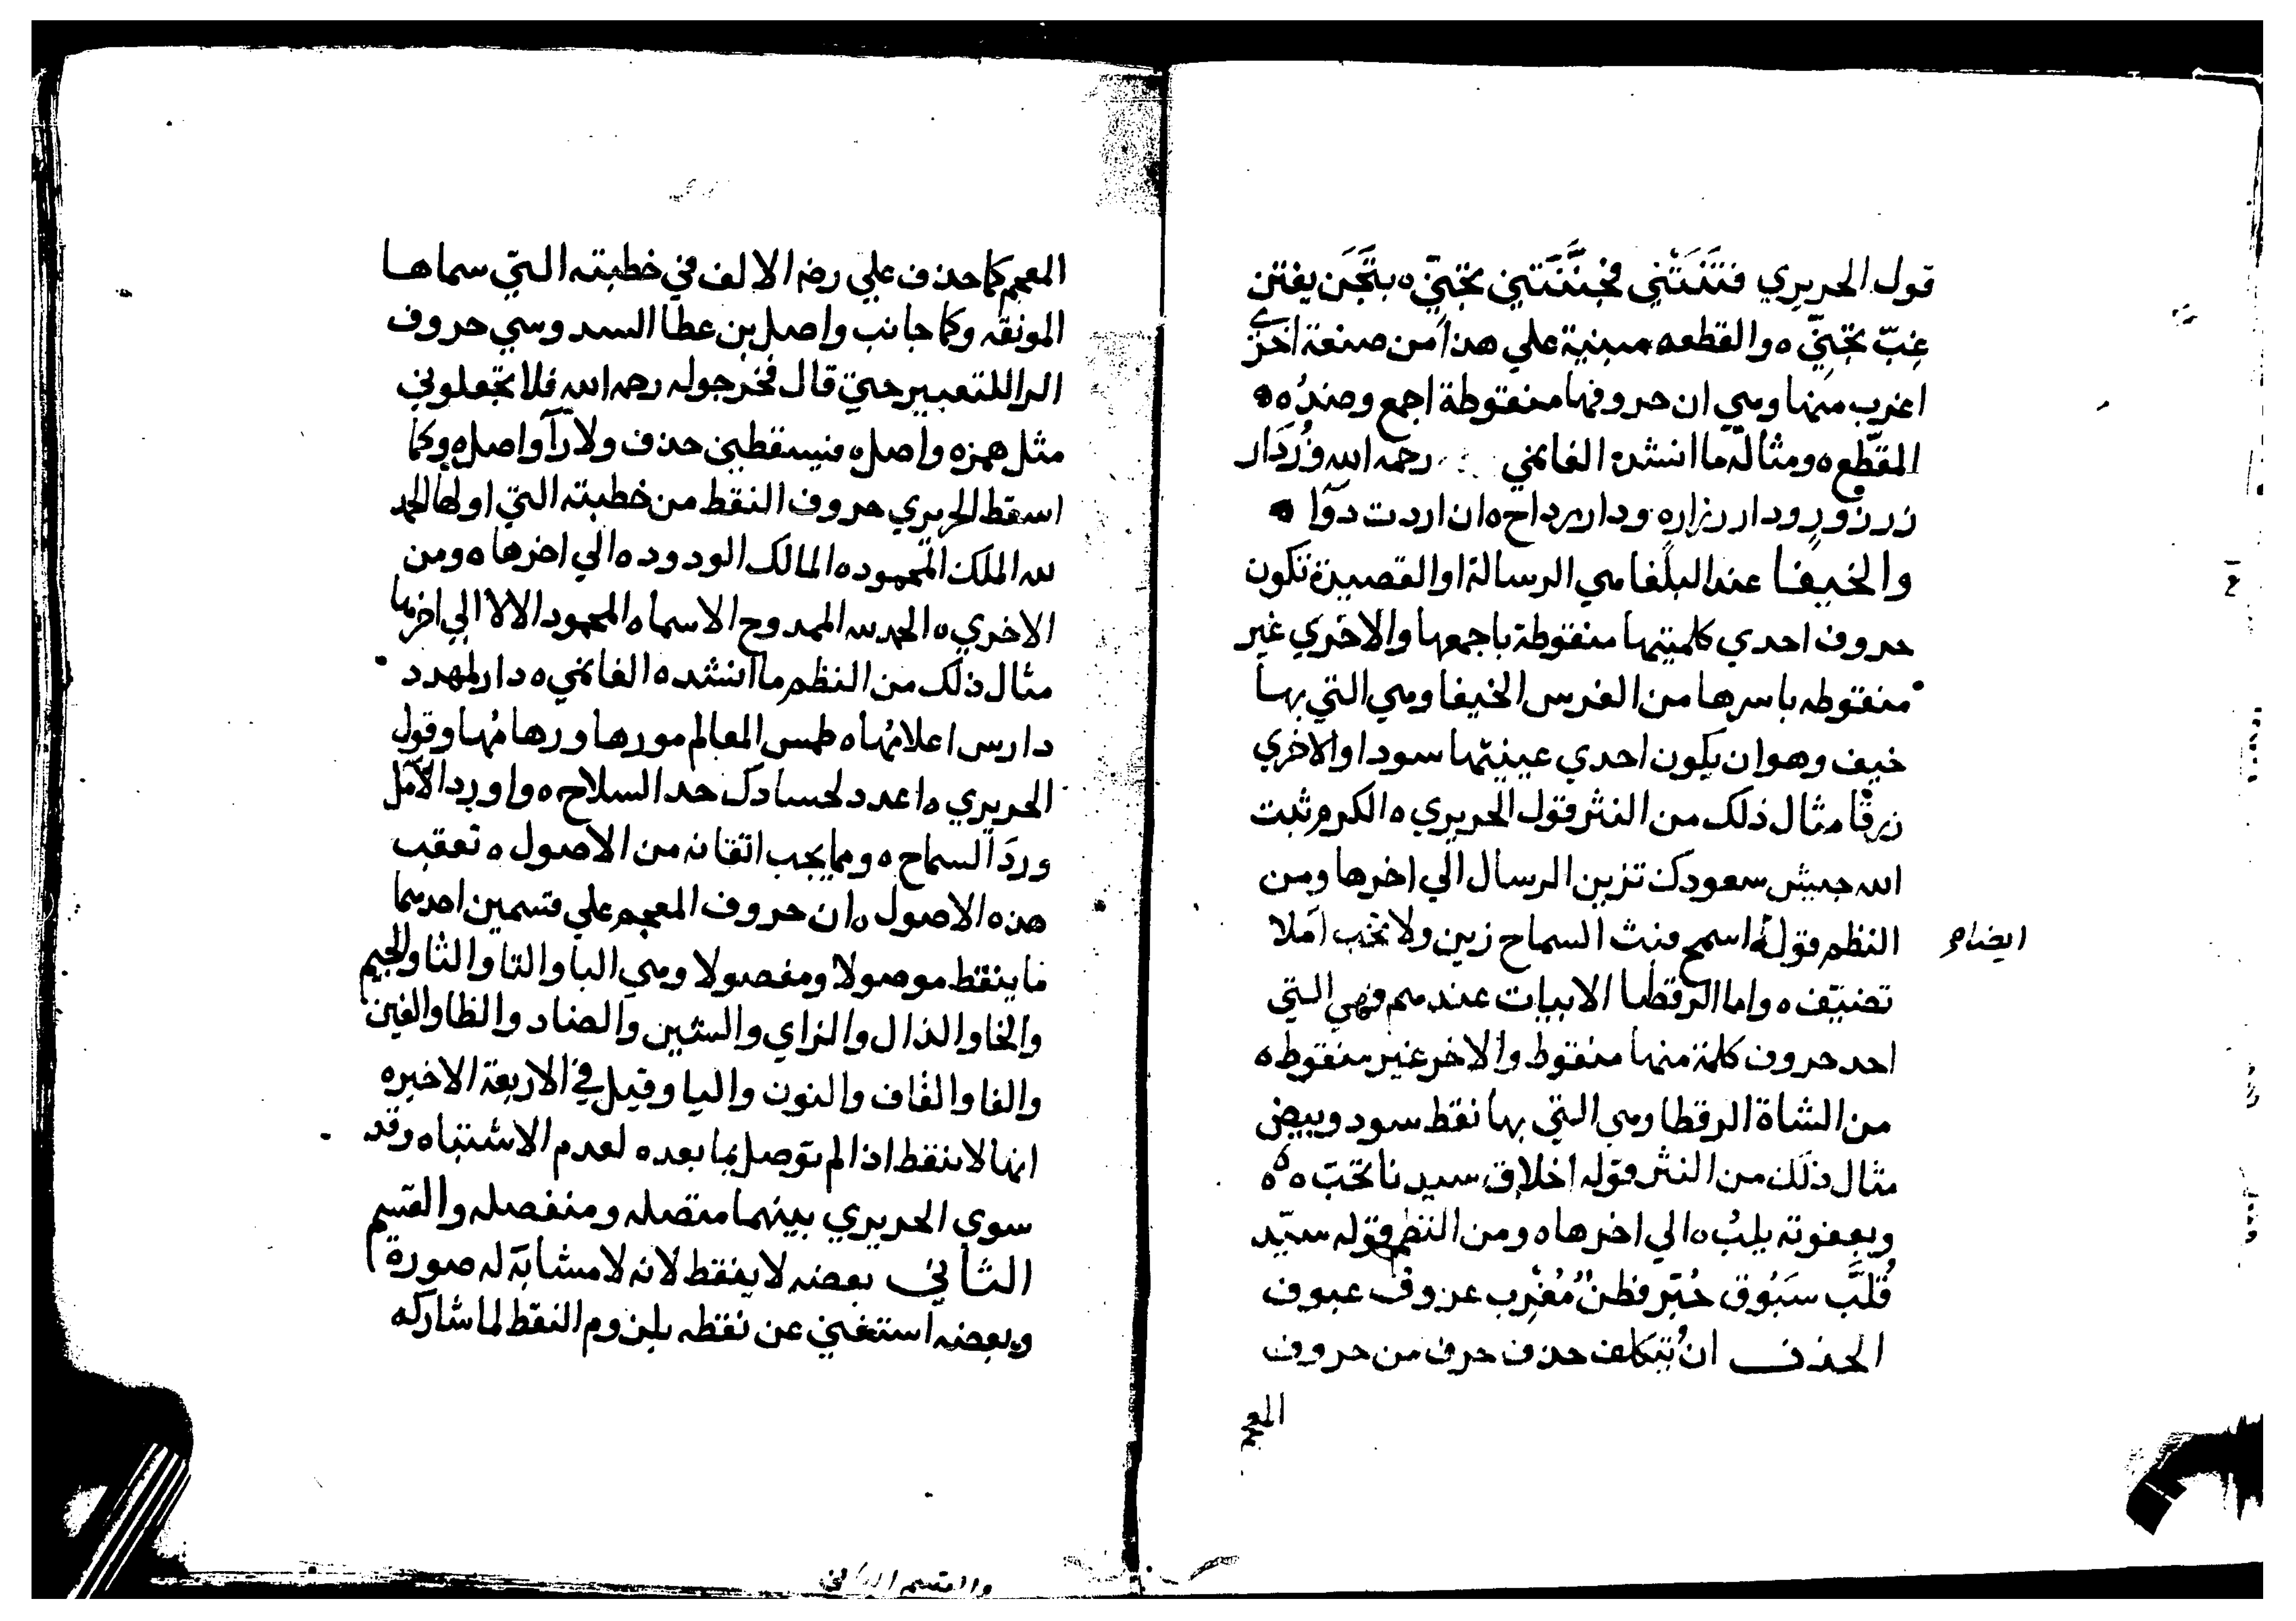 قول الحريري فتنتني فجننتني تجني ه بتجن يفتن
غب تجني ه والقطعه مبنية علي هذا من صنعة اخري
اغرب منها وهي ان حروفها منقوطة اجمع وضده ه
المقطع ه ومثاله ما انشده الغانمي رحمه الله وزر دار
زرزور ودار رزاره ودار رداح ه ان اردت دوا ه
والخيفا عند البلغا هي الرسالة او القصيدة تكون
حروف احدي كلمتيها منقوطة باجمعها والاخري غير
منقوطه باسرها من الفرس الخيفا وهي التي بها
خيف وهو ان يكون احدي عينيها سودا والاخري
زرقا مثال ذلك من النثر قول الحريري ه الكرم ثبت
الله جيش سعودك تزين الرسال الي اخرها ومن
النظم قوله اسمح فبث السماح زين ولا تخب املا
ايضا صح
تضيف ه واما الرقطا الابيات عندهم فهي التي
احد حروف كلمة منها منقوط والاخر غير منقوط ه
من الشاة الرقطا وهي التي بها نقط سود وبيض
مثال ذلك من النثر قوله اخلاق سيدنا تحب ه ه
وبعقوته يلب ه الي اخرها ه ومن النظم قوله سيد
قلب سبوق خبر فطن مغرب عزوف عيوف
الحذف ان يتكلف حذف حرف من حروف
المعجم
المعجم كما حذف علي رضه الالف في خطبته التي سماها
المونقه وكما جانب واصل بن عطا السدوسي حروف
الرا للتعبير حتي قال فخر جوله رحمه الله فلا تجعلوني
مثل همزه واصل ه فيسقطني حذف ولا رآ واصل ه وكما
اسقط الحريري حروف النقط من خطبته التي اولها الحمد
لله الملك المحمود ه المالك الودود ه الي اخرها ه ومن
الاخري ه الحمد لله الممدوح الاسما ه المحمود الالا الي اخرها
مثال ذلك من النظم ما انشده الغانمي ه دار لمهدد
دارس اعلامها ه طمس المعالم مورها ورهامها وقول
الحريري ه اعدد لحسادك حد السلاح ه واورد الآمل
ورد السماح ه ومما يجب اتقانه من الاصول ه تعقب
هذه الاصول ه ان حروف المعجم علي قسمين احدهما
ما ينقط موصولا ومفصولا وهي البا والتا والثا والجيم
والخا والذال والزاي والشين والضاد والظا والغين
والفا والقاف والنون واليا وقيل في الاربعة الاخيره
انها لا ينقط اذا لم توصل بما بعده لعدم الاشتباه وقد
سوي الحريري بينهما متصله ومنفصله والقسم
الثاني بعضه لا ينقط لانه لا مشابه له صورة
وبعضه استغني عن نقطه بلزوم النقط لما شاركه
والقسم الثاني